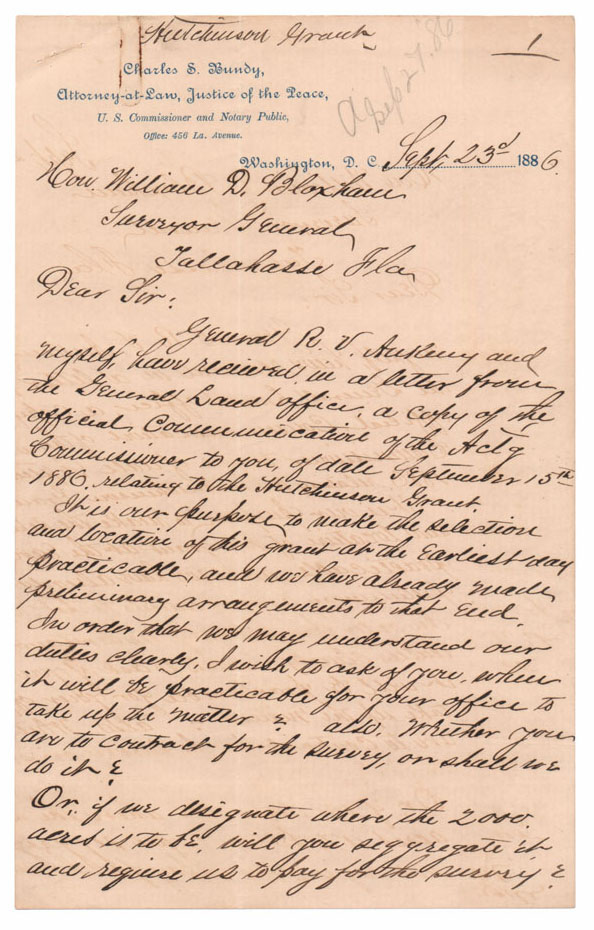 Hutchinson Grant
1
Charles S. Bundy,
Attorney-at-Law, Justice of the Peace,
U. S. Commissioner and Notary Public,
Office: 456 La. Avenue.
Sep 27 '86
Washington, D. C. Sept 23d 1886.
Hon. William D. Bloxham
Surveyor General
Tallahasse Fla
Dear Sir:
General R. V. Ankeny and
myself, have recieved in a letter from
the General Land office, a copy of the
official Communication of the Actg
Commissioner to you, of date September 15th
1886, relating to the Hutchinson Grant.
It is our purpose to make the selection
and location of this grant at the Earliest day
practicable, and we have already made
preliminary arrangements to that End.
In order that we may understand our
duties clearly, I wish to ask of you, when
it will be practicable for your office to
take up the matter? also. Whether you
are to contract for the survey, or shall we
do it?
Or. if we designate where the 2000.
acres is to be, will you seggregate it
and require us to pay for the survey?